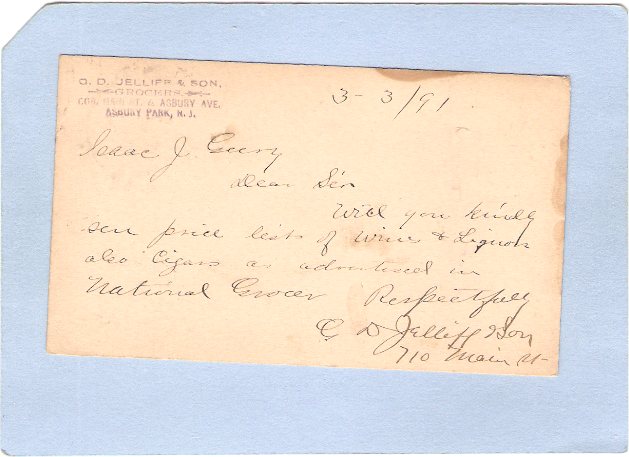 G. D. JELLIFF & SON,
GROCERS,
COR. MAIN ST. & ASBURY AVE.
ASBURY PARK, N. J.
3-3/91
Isaac J.
Dear Sir
Will you kindly
sen price list of Wine & Liquors
also Cigars as advertised in
National Grocer Respectfully
G D Jelliff & Son
710 Main St